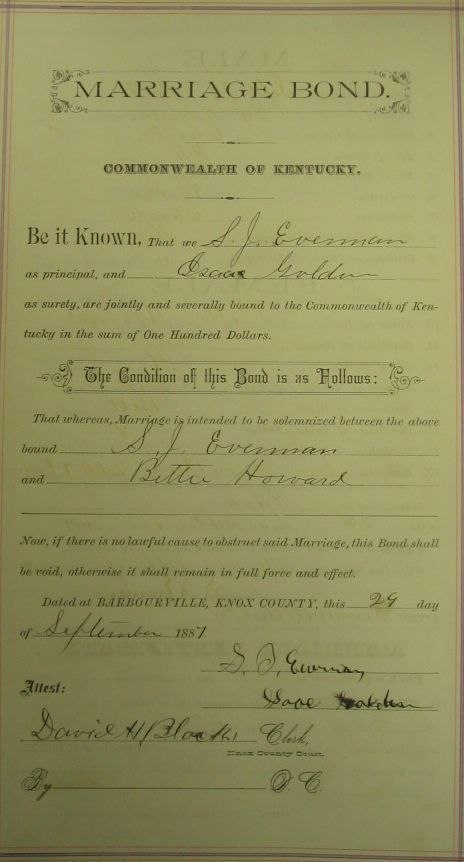 MARRIAGE BOND.
COMMONWEALTH OF KENTUCKY.
Be it Known, That we S. J. Everman
as principal, and Isaac Golden
as surety, are jointly and severally bound to the Commonwealth of Ken-
tucky in the sum of One Hundred Dollars.
The Condition of this Bond is as Follows:
That whereas, Marriage is intended to be solemnized between the above
bound S. J. Everman
and Bettie Howard
Now, if there is no lawful cause to obstruct said Marriage, this Bond shall
be void, otherwise it shall remain in full force and effect.
Dated at BARBOURVILLE, KNOX COUNTY, this 29 day
of September 1887
Attest:
David H, Clerk,
Knox County Court.
By D. C.